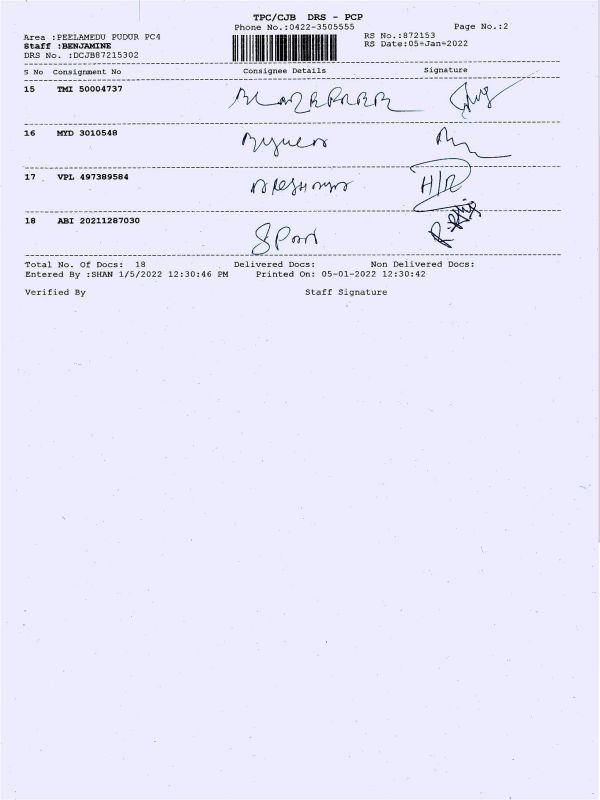 TPC/CJB DRS - PCP
Phone No.:0422-3505555 Page No.:2
Area :PEELAMEDU PUDUR PC4 RS No.:872153
Staff :BENJAMINE RS Date:05-Jan-2022
DRS No. :DCJB87215302
S No Consignment No Consignee Details Signature
15 TMI 50004737
16 MYD 3010548
17 VPL 497389584 H/R
18 ABI 20211287030
Total No. Of Docs: 18 Delivered Docs: Non Delivered Docs:
Entered By :SHAN 1/5/2022 12:30:46 PM Printed On: 05-01-2022 12:30:42
Verified By Staff Signature